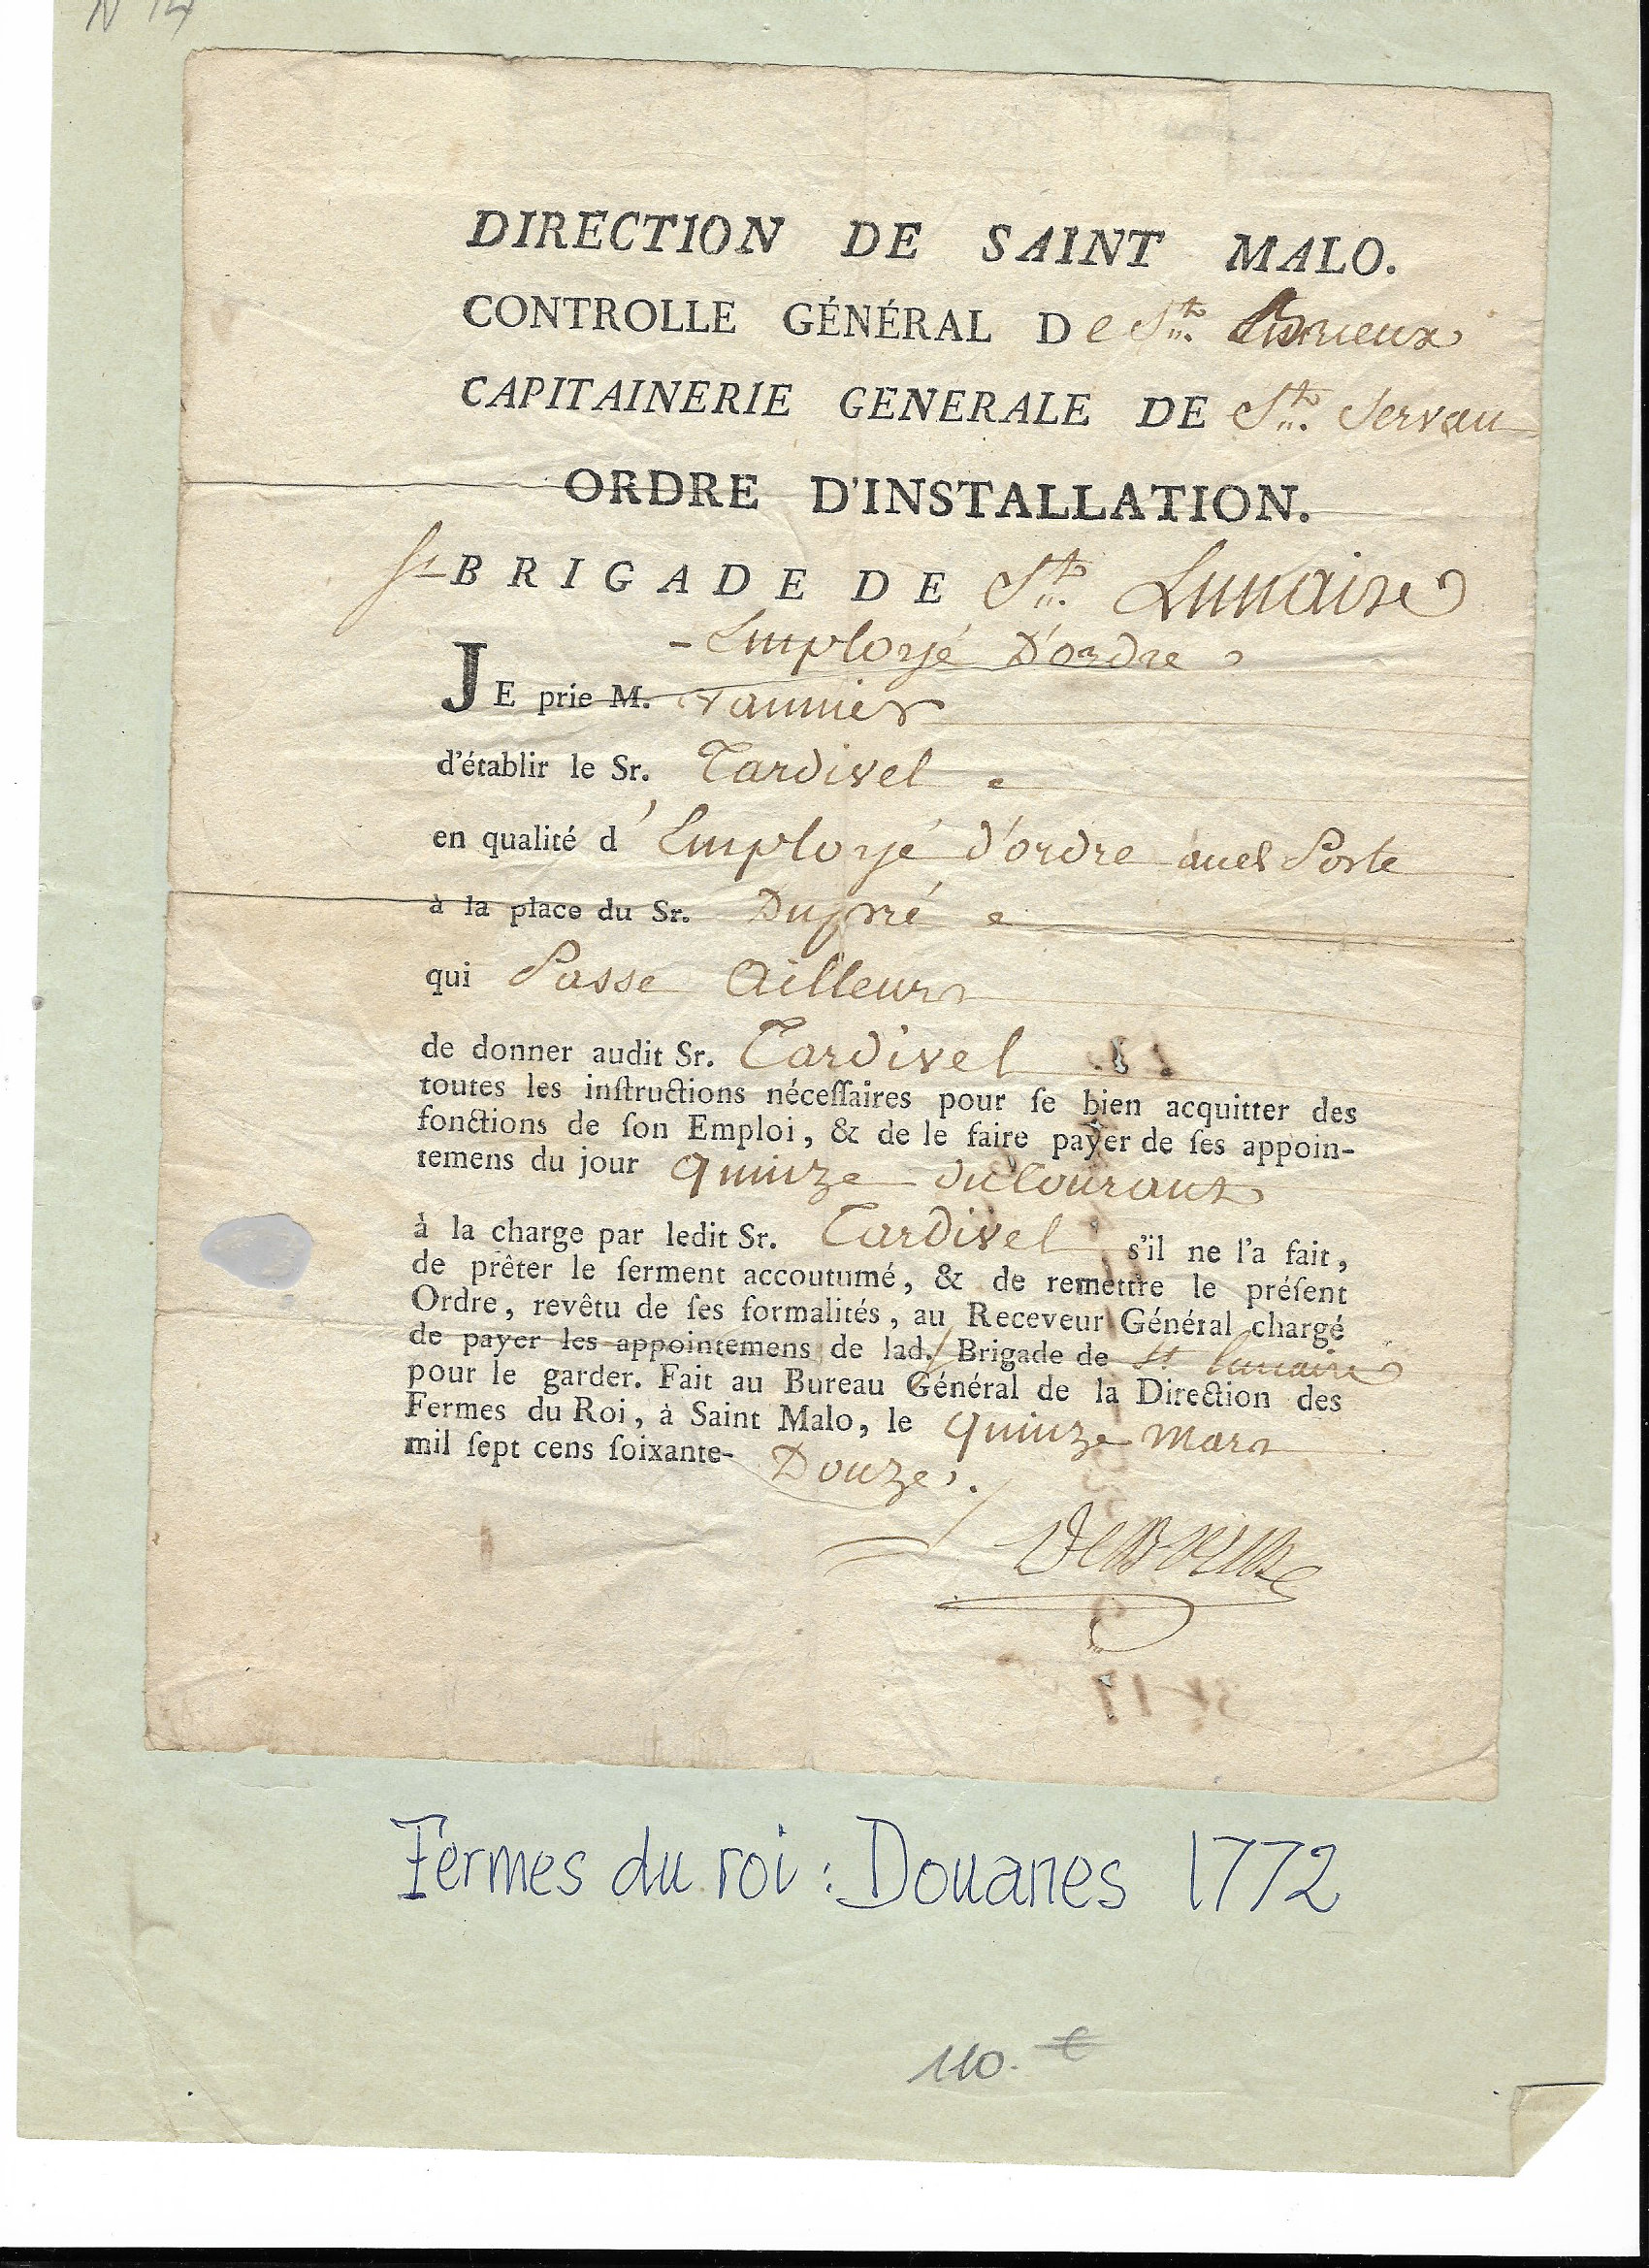 N 14
DIRECTION DE SAINT MALO.
CONTROLLE GÉNÉRAL De St. Brieux
CAPITAINERIE GENERALE DE St. Servan
ORDRE D'INSTALLATION.
BRIGADE DE St. Lunaire
- Employé D'ordre
JE prie M. Vannier
d'établir le Sr. Tardivel
en qualité d'Employé d'ordre audt Poste
à la place du Sr. Dupré
qui Passe Ailleurs
de donner audit Sr. Tardivel
toutes les inſtructions néceſſaires pour ſe bien acquitter des
fonctions de ſon Emploi, & de le faire payer de ſes appoin-
temens du jour quinze du Courant
à la charge par ledit Sr. Tardivel s'il ne l'a fait,
de prêter le ſerment accoutumé, & de remettre le préſent
Ordre, revêtu de ſes formalités, au Receveur Général chargé
de payer les appointemens de lad. Brigade de St lunaire
pour le garder. Fait au Bureau Général de la Direction des
Fermes du Roi, à Saint Malo, le quinze Mars
mil ſept cens ſoixante- Douze.
Fermes du roi : Douanes 1772
110.- €